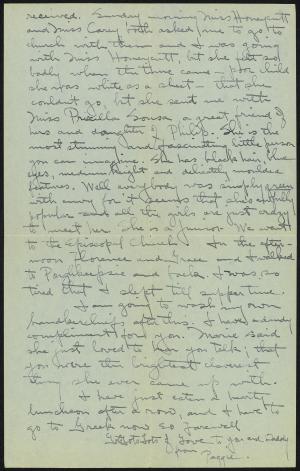 received. Sunday morning Miss Honeycutt
and Miss Carey both asked me to go to
church with them and I was going
with Miss Honeycutt, but she felt so
badly when the time came - poor child
she was white as a sheet - that she
couldn't go, but she sent me with
Miss Priscilla Sousa, a great friend of
hers and daughter of Philip. She is the
most stunning and fascinating little person
you can imagine. She has black hair, blue
eyes, medium height and delicately moulded
features. Well everybody was simply green
with envy for it seems that she's entirely
popular and all the girls are just crazy
to meet her. She is a Junior. We went
to the Episcopal Church. In the after-
noon Florence and Grace and I walked
to Poughkeepsie and back. I was so
tired that I slept till suppertime.
I am going to wash my own
handkerchiefs after this. I have a dandy
compliment for you. Marie said
she just loved to hear you talk; that
you were the brightest cleverest
thing she ever came up with.
I have just eaten a hearty
luncheon after a row, and I have to
go to Greek now so Farewell
Lots Lots Lots of Love to you and Daddy
from